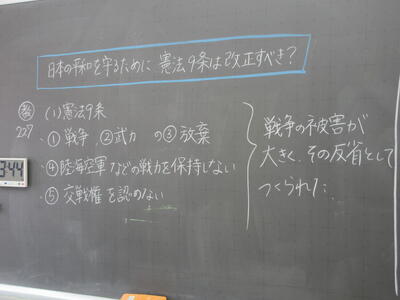 日本の平和を守るために 憲法9条は改正すべき?
教 (1)憲法9条
227
・①戦争、②武力 の③放棄
・④陸海空軍などの戦力を保持しない
・⑤交戦権を認めない
戦争の被害が
大きく、その反省として
つくられた
3:44